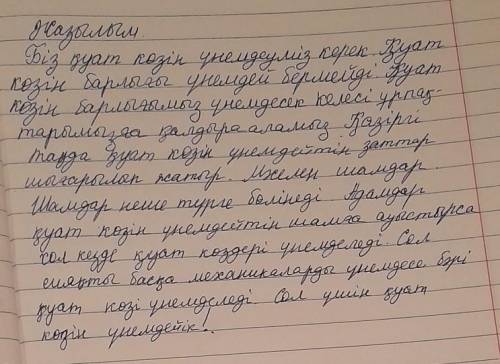 Жазылым.
Біз қуат көзін үнемдеуміз керек Қуат
көзін барлығы үнемдей бермейді Қуат
көзін барлығымыз үнемдесек келесі ұрпақ-
тарымызда қалдыра аламыз Қазіргі
таңда қуат көзін үнемдейтін заттар
шығарылап жатыр. Мәселен шамдар.
Шамдар неше түрге бөлінеді. Адамдар
қуат көзін үнемдейтін шамға ауыстырса
сол кезде қуат көздері үнемделеді. Сол
сияқты басқа механикаларды үнемдесе бәрі
қуат көзі үнемделеді. Сол үшін қуат
көзін үнемдейік!.